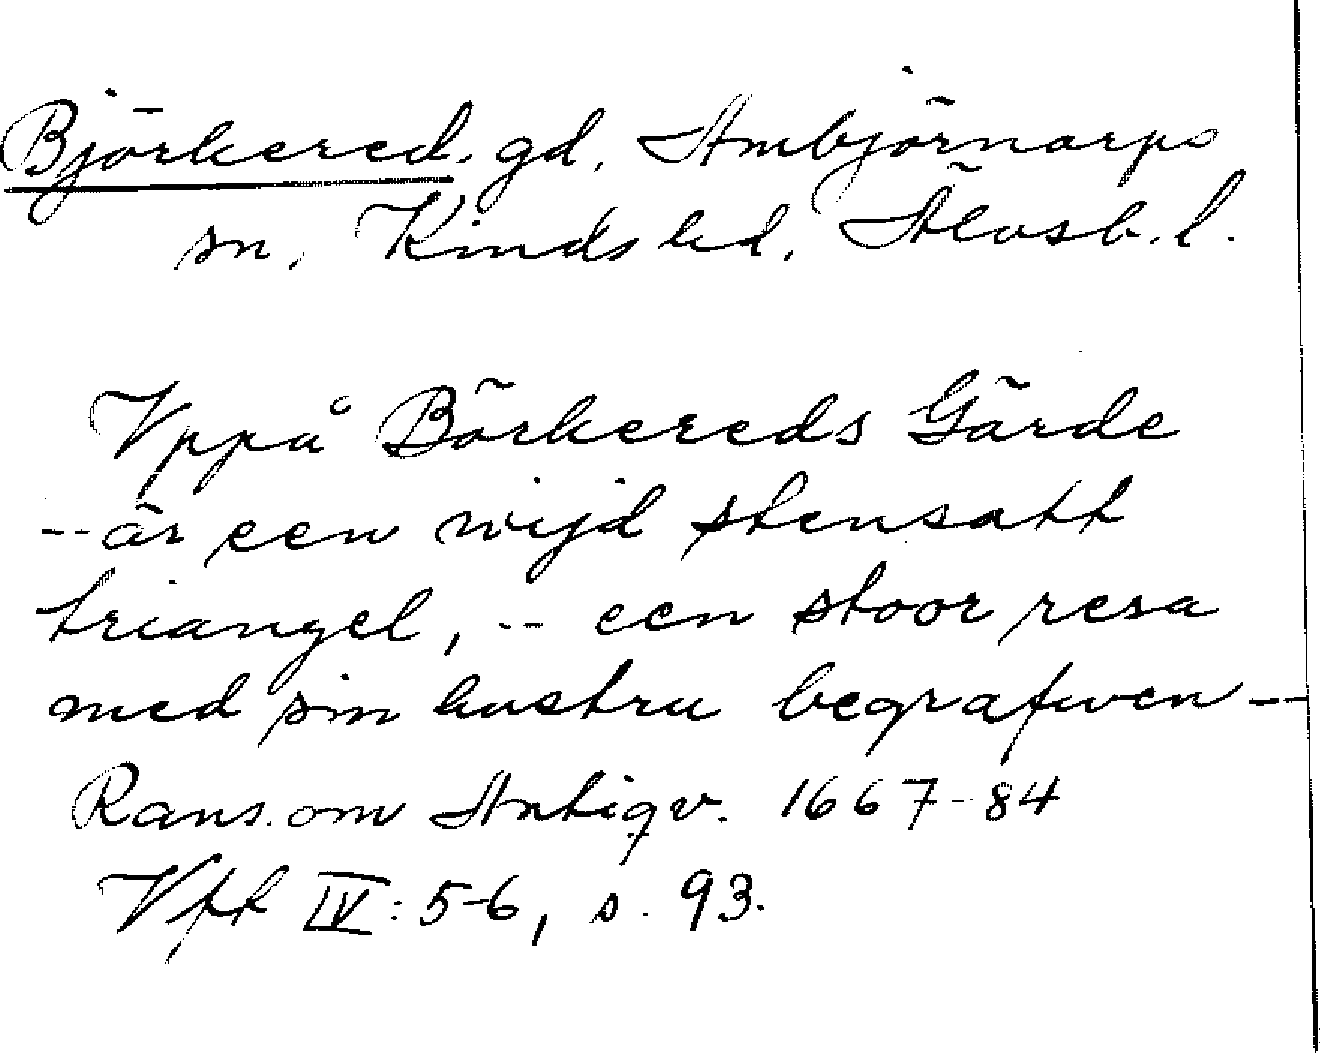 Björkered. gd. Ambjörnarps
sn. Kinds hd. Älvsb. l.
Vppå Börkereds Gärde
-- är een wijd stensatt
triangel, -- een stoor resa
med sin hustru begrafwen --
Rans. om Antiqv. 1667-84
Vff IV: 5-6, s. 93.